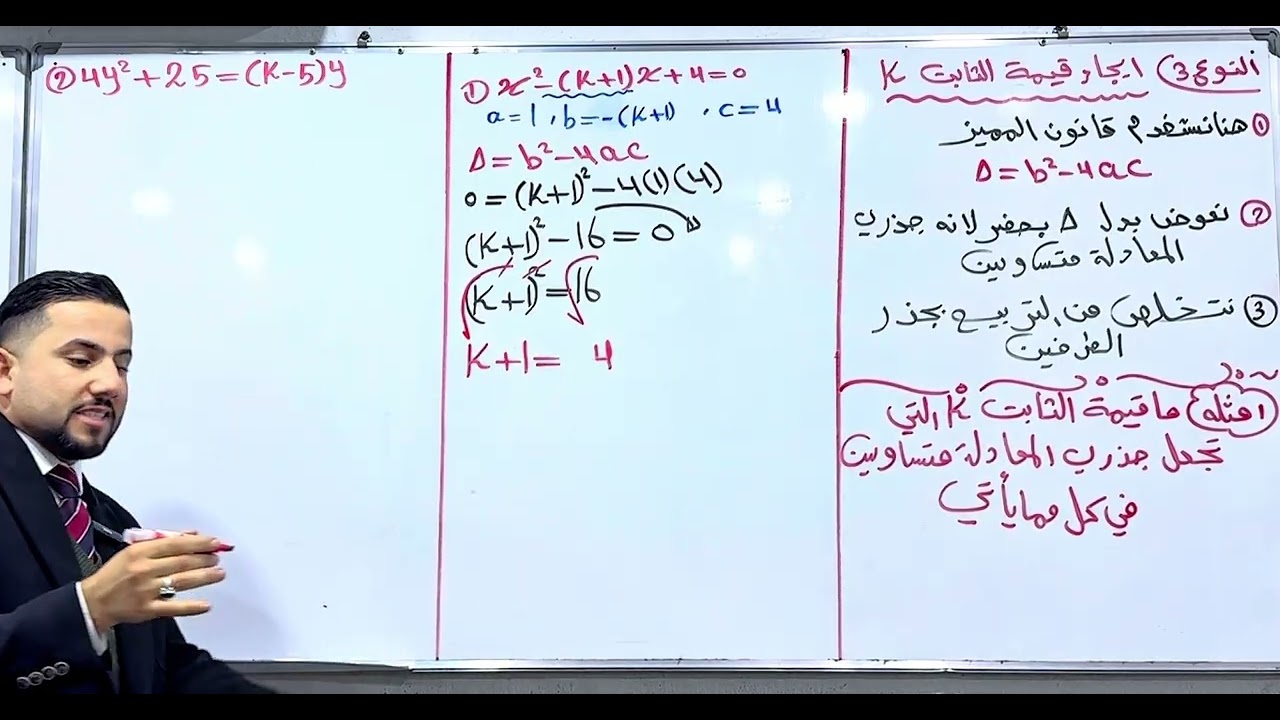 النوع 3) ايجاد قيمة الثابت K
① هنا نستخدم قانون المميز
Δ = b² - 4ac
② نعوض بدل Δ بصفر لانه جذري
المعادلة متساويين
③ نتخلص من التربيع بجذر
الطرفين
امثلة) ما قيمة الثابت K التي
تجعل جذري المعادلة متساويين
في كل مما يأتي
① x² - (K+1)x + 4 = 0
a = 1 , b = -(K+1) , c = 4
Δ = b² - 4ac
0 = (K+1)² - 4(1)(4)
(K+1)² - 16 = 0
(K+1)² = 16
K+1 = 4
② 4y² + 25 = (K-5)y